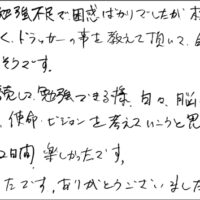 勉強不足で困惑ばかりでしたが
く、ドラッカーの事を教えて頂いて、
そうです。
続して勉強できる様、日々、脳
、使命・ビジョンを考えていこうと思
2日間、楽しかったです。
たです。ありがとうございました